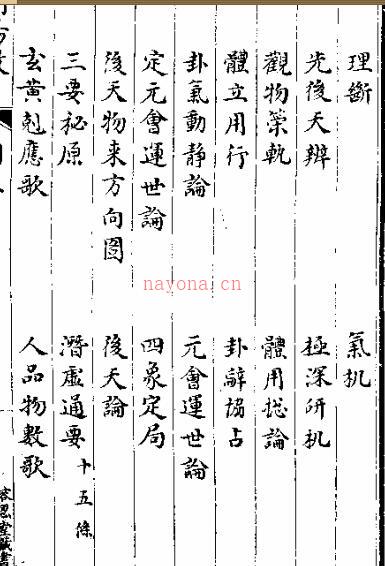 理斷 氣机
先後天辨 極深研机
觀物榮軌 體用捴論
體立用行 卦辭協占
卦氣動靜論 元會運世論
定元會運世論 四象定局
後天物来方向图 後天論
三要秘原 潛虛通要 十五條
玄黃剋應歌 人品物數歌
nayona.cn